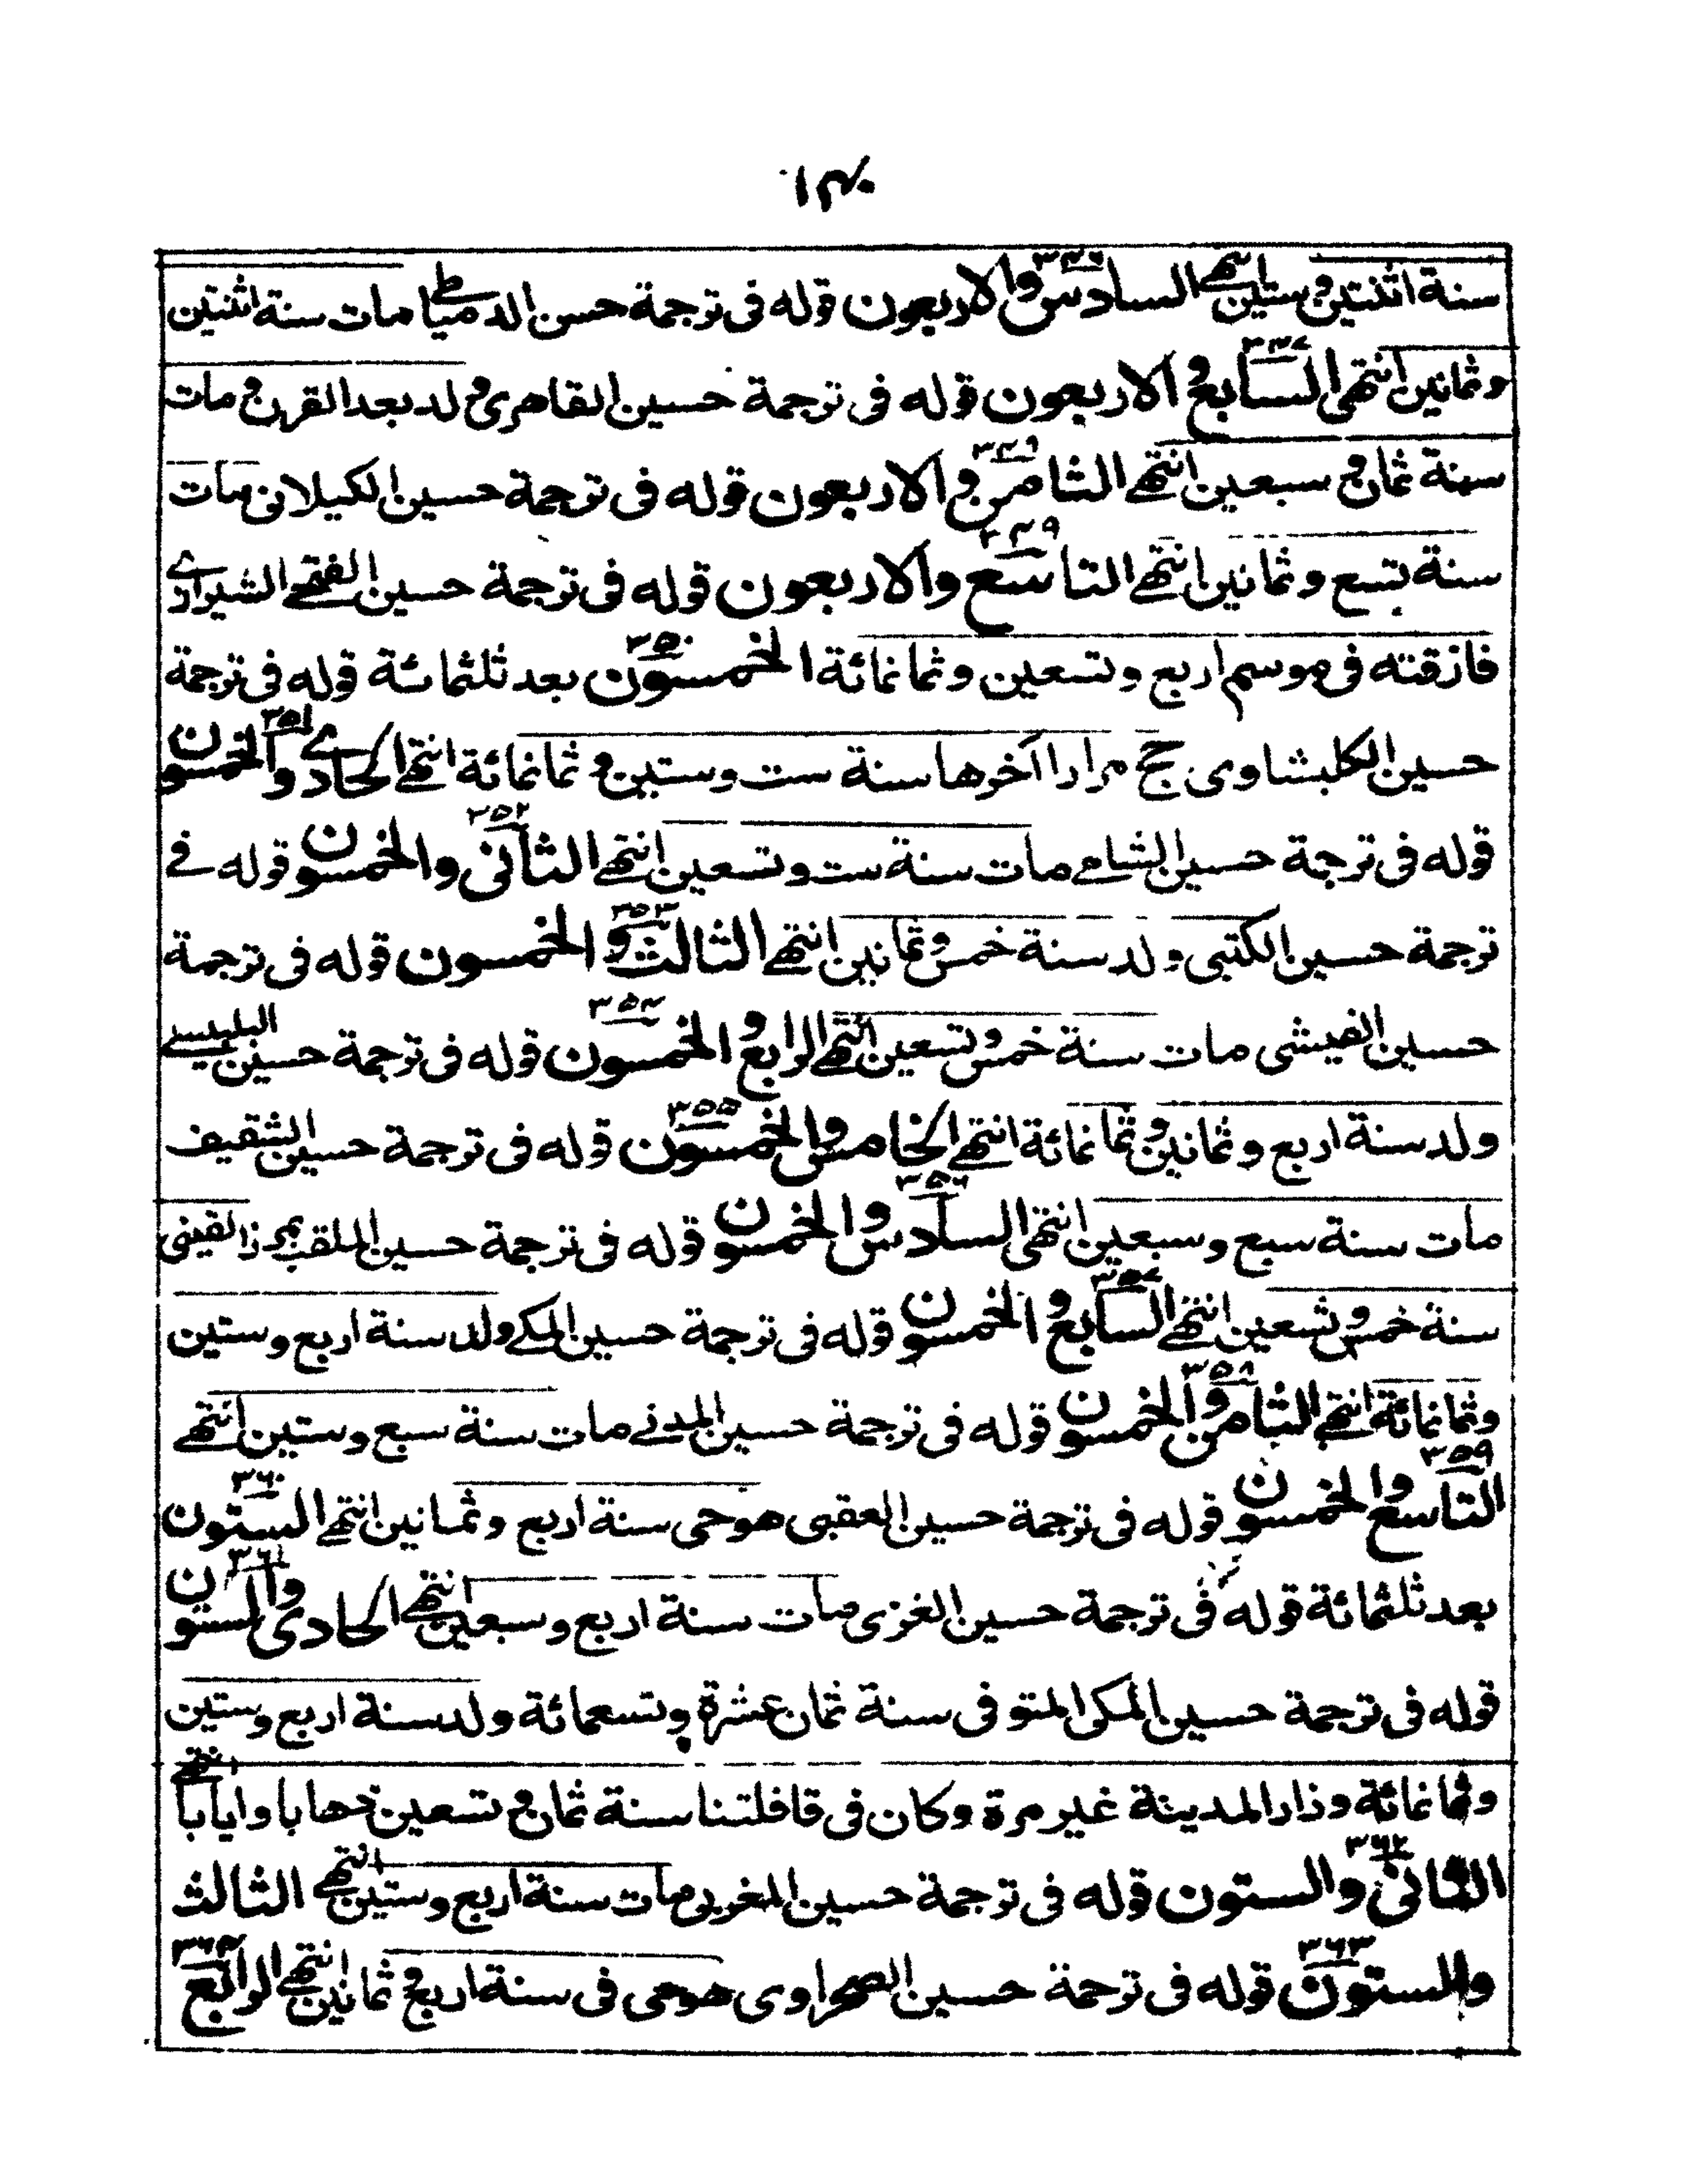 ١٤٠
سنة اثنتين وستين انتهى السادس والاربعون ٣٤٦ قوله فى ترجمة حسن الدمياطى مات سنة اثنتين
وثمانين انتهى السابع والاربعون ٣٤٧ قوله فى ترجمة حسين القاهرى ولد بعد القرن ومات
سنة ثمان وسبعين انتهى الثامن والاربعون قوله فى ترجمة حسين الكيلانى مات
سنة تسع وثمانين انتهى التاسع والاربعون ٣٤٩ قوله فى ترجمة حسين الفتحى الشيرازى
فارقته فى موسم اربع وتسعين وثمانمائة الخمسون ٣٥٠ بعد ثلثمائة قوله فى ترجمة
حسين الكلبشاوى حج مرارا آخرها سنة ست وستين وثمانمائة انتهى الحادى والخمسون ٣٥١
قوله فى ترجمة حسين الشامى مات سنة ست وتسعين انتهى الثانى والخمسون ٣٥٢ قوله فى
ترجمة حسين الكتبى ولد سنة خمس وثمانين انتهى الثالث والخمسون ٣٥٣ قوله فى ترجمة
حسين الفيشى مات سنة خمس وتسعين انتهى الرابع والخمسون ٣٥٤ قوله فى ترجمة حسين البلبيسى
ولد سنة اربع وثمانين وثمانمائة انتهى الخامس والخمسون ٣٥٥ قوله فى ترجمة حسين الشقيف
مات سنة سبع وسبعين انتهى السادس والخمسون ٣٥٦ قوله فى ترجمة حسين الملقب
سنة خمس وتسعين انتهى السابع والخمسون ٣٥٧ قوله فى ترجمة حسين المكى ولد سنة اربع وستين
وثمانمائة انتهى الثامن والخمسون ٣٥٨ قوله فى ترجمة حسين المدنى مات سنة سبع وستين انتهى
التاسع والخمسون ٣٥٩ قوله فى ترجمة حسين العقبى هو حى سنة اربع وثمانين انتهى الستون ٣٦٠
بعد ثلثمائة قوله فى ترجمة حسين الغزى مات سنة اربع وسبعين انتهى الحادى والستون ٣٦١
قوله فى ترجمة حسين المكى المتوفى سنة ثمان عشرة وتسعمائة ولد سنة اربع وستين
وثمانمائة وزار المدينة غير مرة وكان فى قافلتنا سنة ثمان وتسعين ذهابا وايابا انتهى
الثانى والستون ٣٦٢ قوله فى ترجمة حسين المغربى مات سنة اربع وستين انتهى الثالث
والستون ٣٦٣ قوله فى ترجمة حسين الصحراوى هو حى فى سنة اربع وثمانين انتهى الرابع ٣٦٤